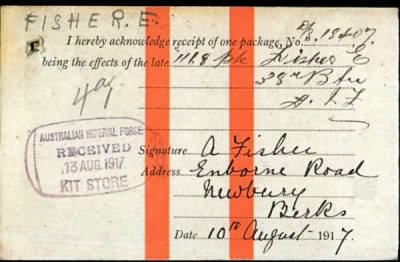 FISHER. E.
I hereby acknowledge receipt of one package, No. 12407.
being the effects of the late 1118 Pte Fisher E
4aq
A.I.F
AUSTRALIAN IMPERIAL FORCE
RECEIVED
13 AUG. 1917
KIT STORE
Signature A Fisher
Address Enborne Road
Newbury
Berks
Date 10th August 1917.